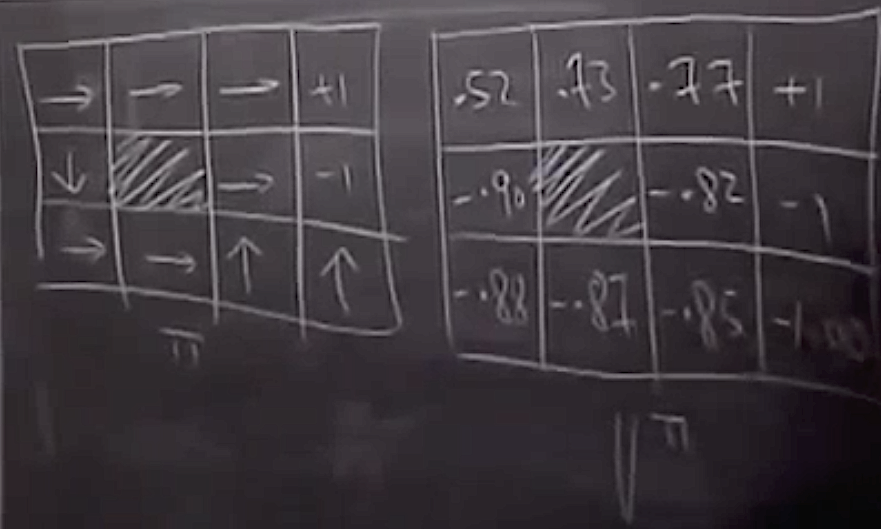 → → → +1 .52 .73 .77 +1
↓ → -1 -.90 -.82 -1
→ → ↑ ↑ -.88 -.87 -.85 -1
π
V^π